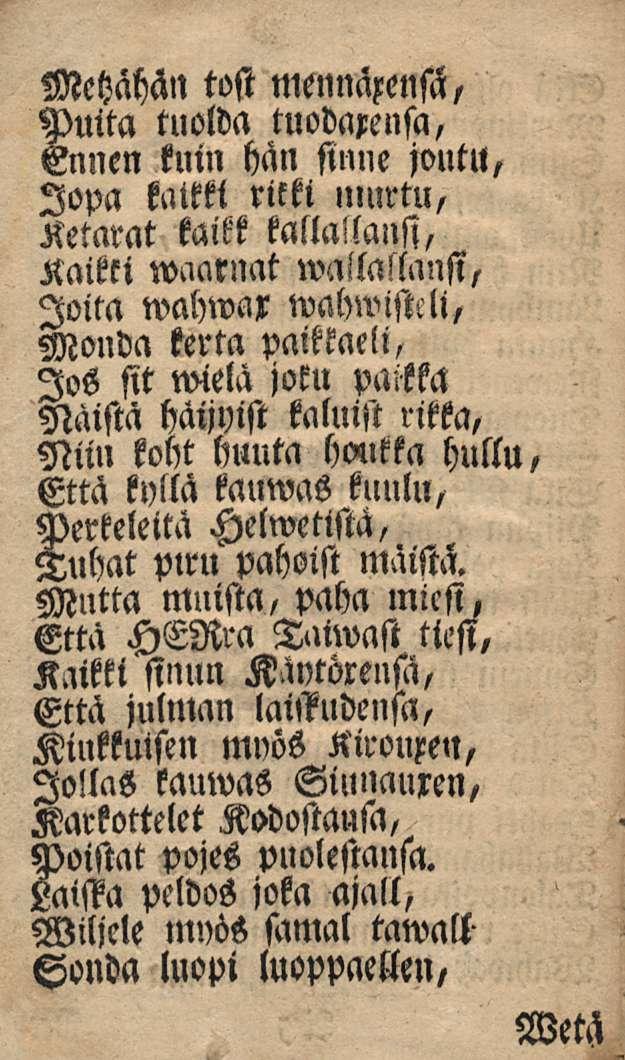 Metzähän tost mennäxensä,
Puita tuolda tuodaxensa,
Ennen kuin hän sinne joutu,
Jopa kaikki rikki murtu,
Ketarat kaikk kallallansi,
Kaikki waarnat wallallansi,
Joita wahwax wahwisteli,
Monda kerta paikkaeli,
Jos sit wielä joku paikka
Näistä häijyist kaluist rikka,
Niin koht huuta houkka hullu,
Että kyllä kauwas kuulu,
Perkeleitä Helwetistä,
Tuhat piru pahoist mäistä.
Mutta muista, paha miesi,
Että HERra Taiwast tiesi,
Kaikki sinun Käytöxensä,
Että julman laiskudensa,
Kiukkuisen myös Kirouxen,
Jollas kauwas Siunauxen,
Karkottelet Kodostansa,
Poistat pojes puolestansa.
Laiska peldos joka ajall,
Wiljele myös samal tawall
Sonda luopi luoppaellen,
Wetä